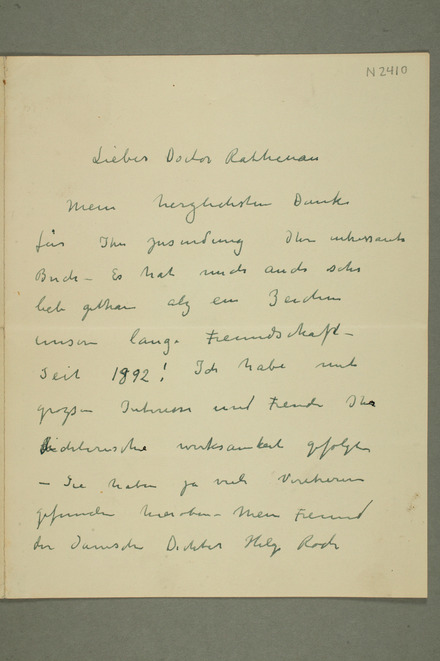 N 2410
Lieber Doctor Rathenau
Mein herzlichsten Dank
für Ihre Zusendung Ihre interessante
Buch – Es hat mich auch sehr
lieb gethan als ein Zeichen
unsere lange Freundschaft –
Seit 1892! Ich habe mit
grosse Interesse und Freude Ihre
wirksamkeit gefolgt
– Sie haben ja viele Verehrer
gefunden hier oben – Mein Freund
der Dänische Dichter Helge Rode